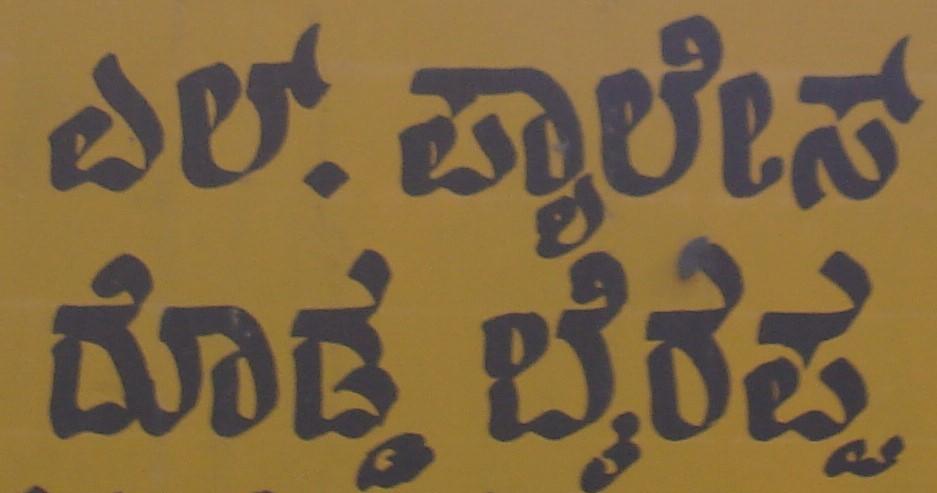 ಎಲ್. ಪ್ಯಾಲೇಸ್
ದೊಡ್ಡ ಬೈರಪ್ಪ